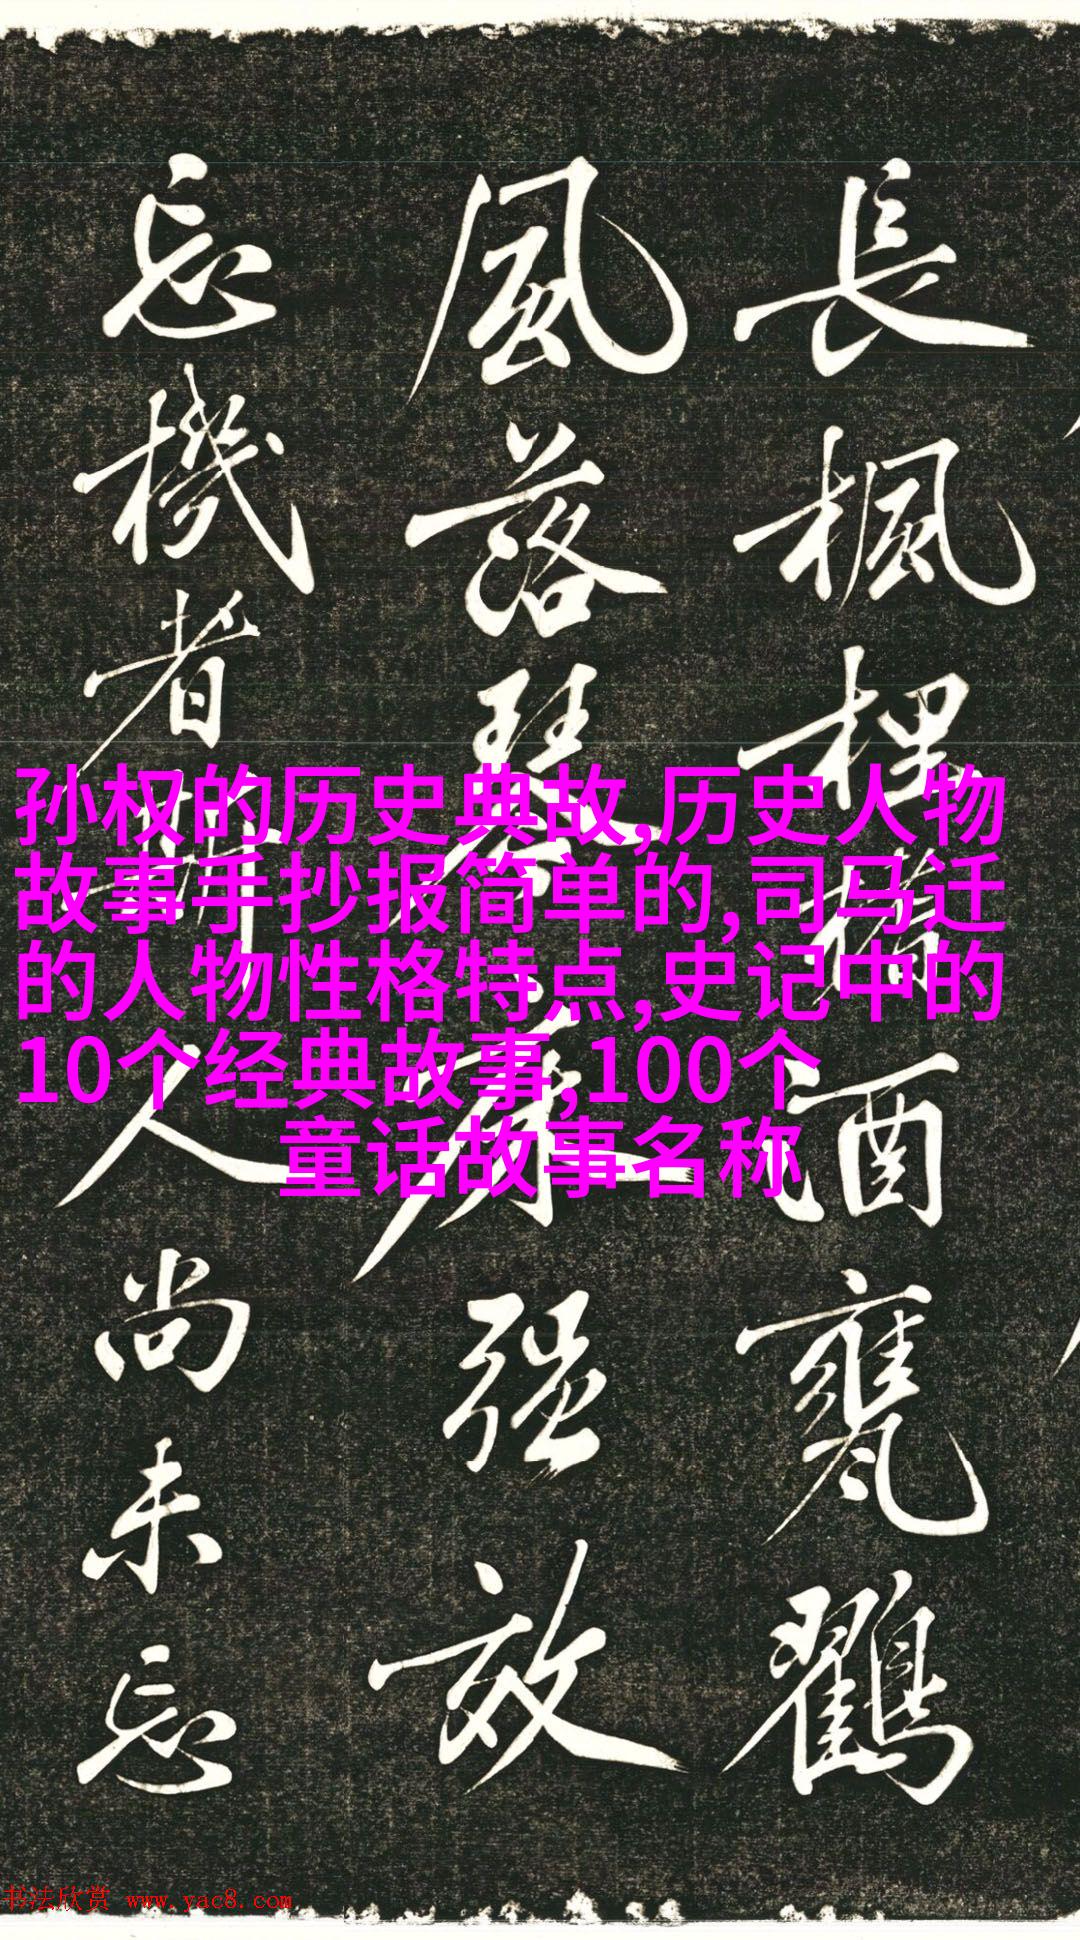 長楓酒甕
風落琴强效
忘機者斯人尚未忘
孙权的历史典故,历史人物
故事手抄报简单的,司马迁
的人物性格特点,史记中的
10个经典故事,100个
童话故事名称
书法欣赏 www.yac8.com